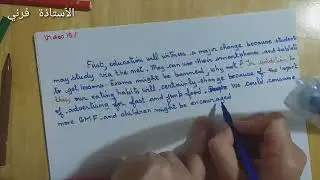 الأستاذة فرني
Video 181
First, education will witness a major change because student
may study via the net. They can use their smartphones and tablets
to get lessons. Exams might be banned, why not? In addition to
this, our eating habits will certainly change because of the
of advertising for fast and junk food. We could consume
more GMF and children might be encouraged